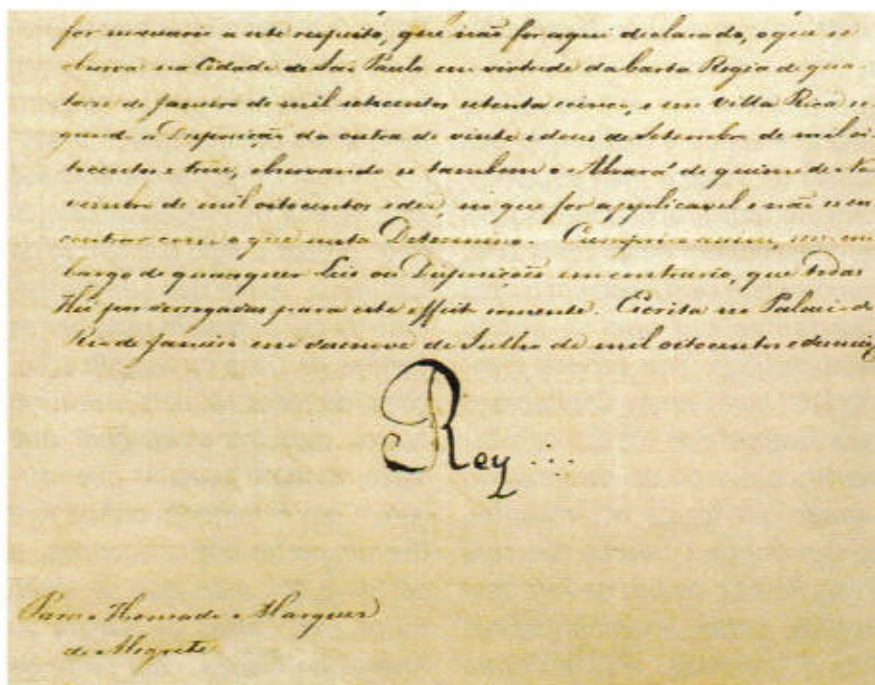 for necessario a este respeito, que não for aqui declarado, o que se
observa na Cidade de São Paulo em virtude da Carta Regia de qua-
torze de Janeiro de mil setecentos setenta e cinco, e em Villa Rica se-
gundo a Disposição da outra de vinte e dous de Setembro de mil oi-
tocentos e treze, observando se tambem o Alvará de quinze de No-
vembro de mil oitocentos e dez, no que for applicavel e não se en-
contrar com o que nesta Determino. Cumprireis assim, sem em-
bargo de quaesquer Leis ou Disposições em contrario, que todas
Hei por derrogadas para este effeito somente. Escrita no Palacio do
Rio de Janeiro em desenove de Julho de mil oitocentos e
Rey ...
Para o Marquez
de Alegrete